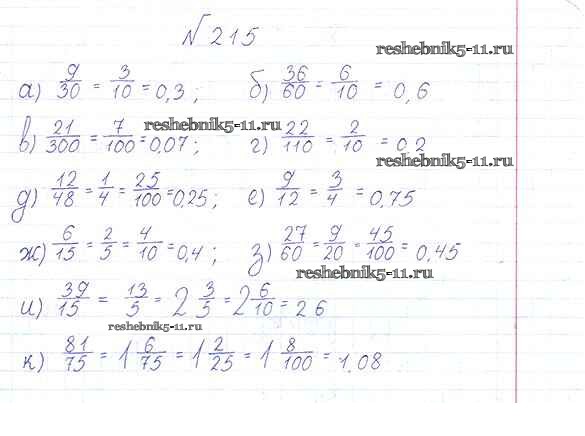 № 215
reshebnik5-11.ru
а) 9/30 = 3/10 = 0,3 ; б) 36/60 = 6/10 = 0,6
в) 21/300 = 7/100 = 0,07 ; г) 22/110 = 2/10 = 0,2
reshebnik5-11.ru
reshebnik5-11.ru
д) 12/48 = 1/4 = 25/100 = 0,25 ; е) 9/12 = 3/4 = 0,75
ж) 6/15 = 2/5 = 4/10 = 0,4 ; з) 27/60 = 9/20 = 45/100 = 0,45
reshebnik5-11.ru
и) 39/15 = 13/5 = 2 3/5 = 2 6/10 = 2 6
reshebnik5-11.ru
к) 81/75 = 1 6/75 = 1 2/25 = 1 8/100 = 1,08